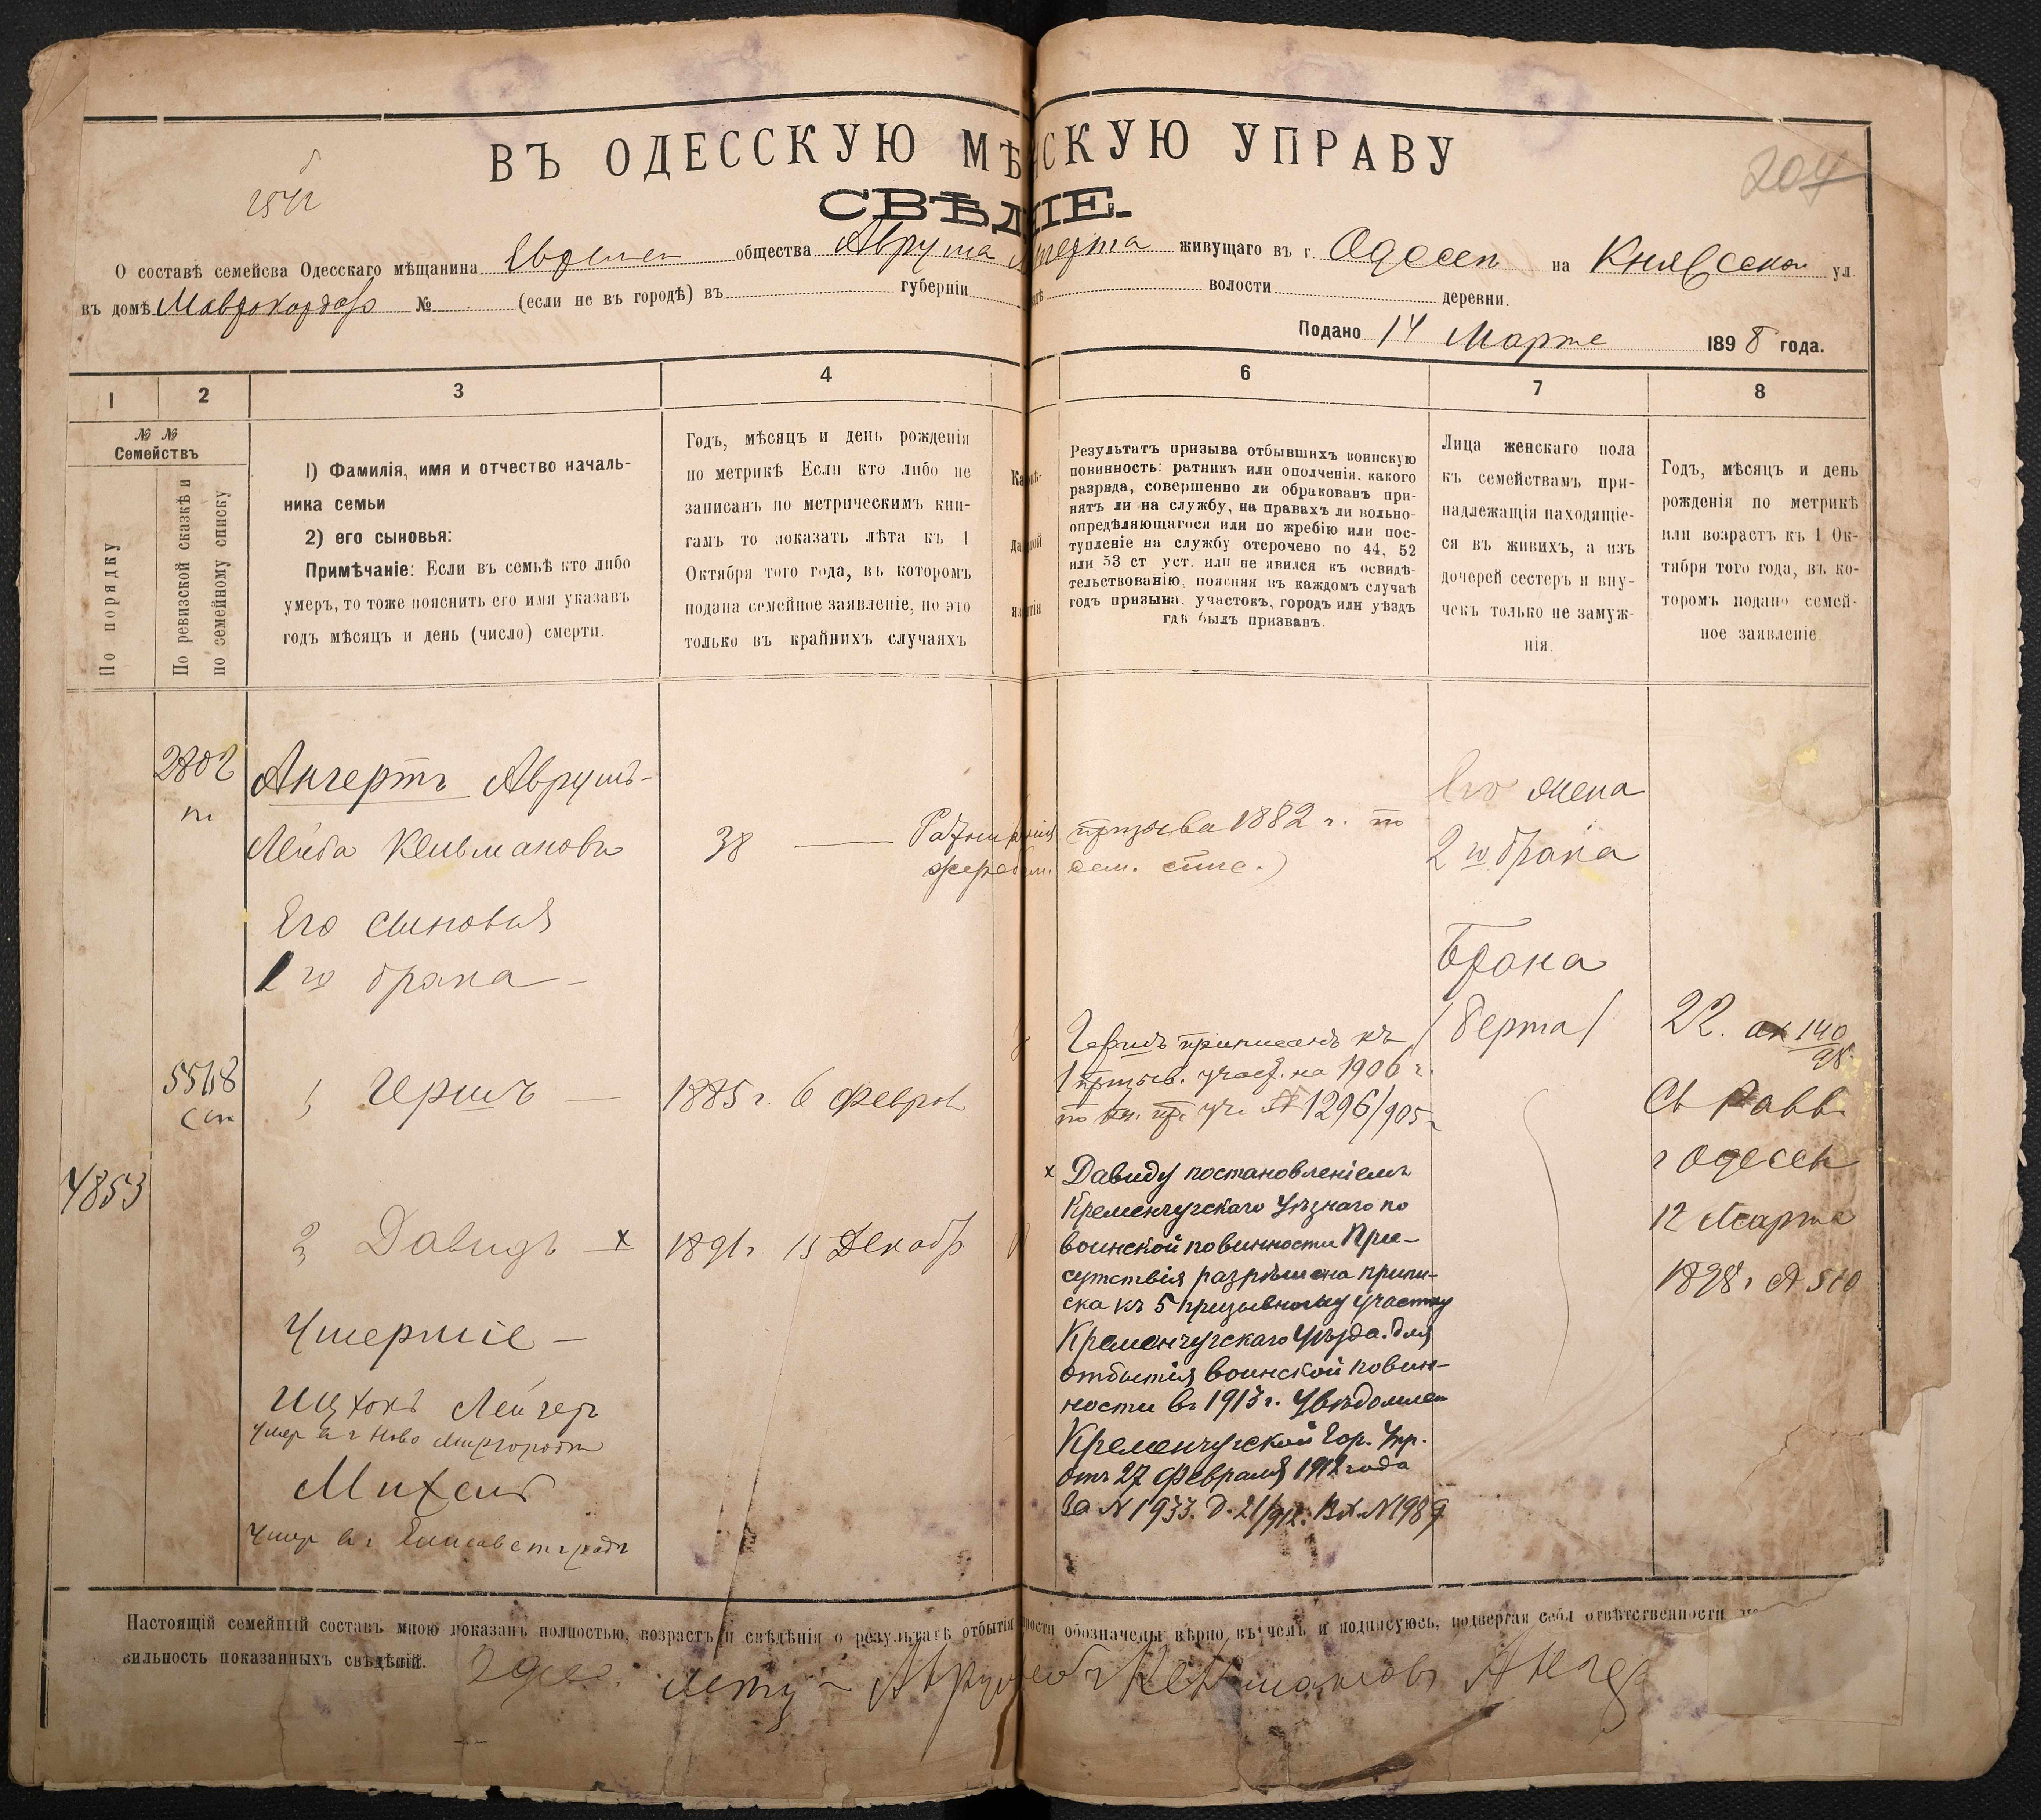 ВЪ ОДЕССКУЮ МѢ СКУЮ УПРАВУ
204
СВѢД ІЕ.
О составѣ семейсва Одесскаго мѣщанина общества Авруша живущаго въ г. Одессѣ на Княжеской ул.
въ домѣ Маврокордато № (если не въ городѣ) въ губерніи волости деревни.
Подано 14 Марта 1898 года.
1 2 3 4 6 7 8
№ № Семействъ
По порядку
По ревизской сказкѣ и по семейному списку
1) Фамилія, имя и отчество началь-
ника семьи
2) его сыновья:
Примѣчаніе: Если въ семьѣ кто либо
умеръ, то тоже пояснить его имя указавъ
годъ мѣсяцъ и день (число) смерти.
Годъ, мѣсяцъ и день рожденія
по метрикѣ Если кто либо не
записанъ по метрическим кни-
гамъ то показать лѣта къ 1
Октября того года, въ которомъ
подана семейное заявленіе, но это
только въ крайнихъ случаяхъ
Результатъ призыва отбывшихъ воинскую
повинность: ратникъ или ополченія, какого
разряда, совершенно ли обракованъ при-
нятъ ли на службу, на правахъ ли вольно-
опредѣляющагося или по жребію или пос-
тупленіе на службу отсрочено по 44, 52
или 53 ст уст. или не явился къ освидѣ-
тельствованію, поясняя въ каждомъ случаѣ
годъ призыва, участокъ, городъ или уѣздъ
гдѣ былъ призванъ.
Лица женскаго пола
къ семействамъ при-
надлежащія находящіе-
ся въ живихъ, а изъ
дочерей сестеръ и вну-
чекъ только не замуж-
нія.
Годъ, мѣсяцъ и день
рожденія по метрикѣ
или возрастъ къ 1 Ок-
тября того года, въ ко-
торомъ подано семей-
ное заявленіе
2802
Ангертъ Аврумъ-
Лейба Кельмановъ
38
призыва 1882 г. по
Его жена
2го брака
Его сыновья
1го брака
Брана
/Берта/
22.
Гершъ приписанъ къ
1 призыв. участ. на 1906 г.
№ 1296/905 г.
5568
1, Гершъ
1885 г. 6 Февраля
Св Равв.
г Одессы
12 Марта
1898 г № 510
4853
2, Давидъ x
1891 г. 15 Декабр
x Давиду постановленіемъ
Кременчугскаго Уѣзднаго по
воинской повинности При-
сутствія разрѣшена припи-
ска къ 5 призывному участку
Кременчугскаго Уѣзда. для
отбытія воинской повин-
ности въ 1913 г. Увѣдомлен
Кременчугской Гор. Упр.
отъ 27 Февраля 1912 года
за N 1933. Д. 21/912. Вх. N 1989
Умершіе
Ицхокъ Лейзеръ
Умер въ г Ново Миргородѣ
Михель
Умер въ г Елисаветградѣ
Настоящій семейный составъ мною показанъ полностью, возрастъ и свѣдѣнія о результатѣ отбытія ности обозначены вѣрно, въ чемъ и подписуюсь, подвергая себя отвѣтственности
вильность показанныхъ свѣдѣній.